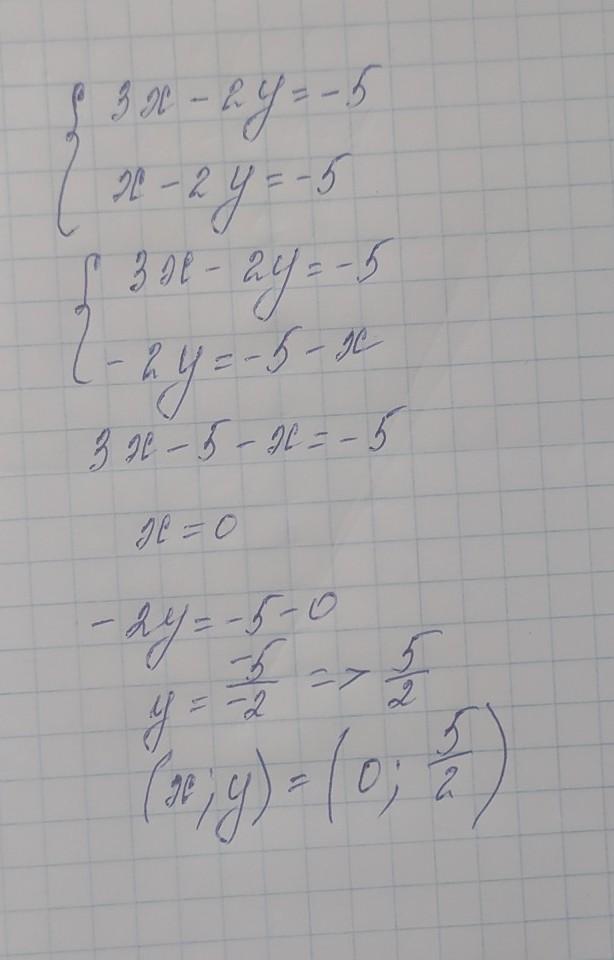 { 3x - 2y = -5
x - 2y = -5
{ 3x - 2y = -5
- 2y = -5 - x
3x - 5 - x = -5
x = 0
- 2y = -5 - 0
y = -5/-2 => 5/2
(x; y) = (0; 5/2)